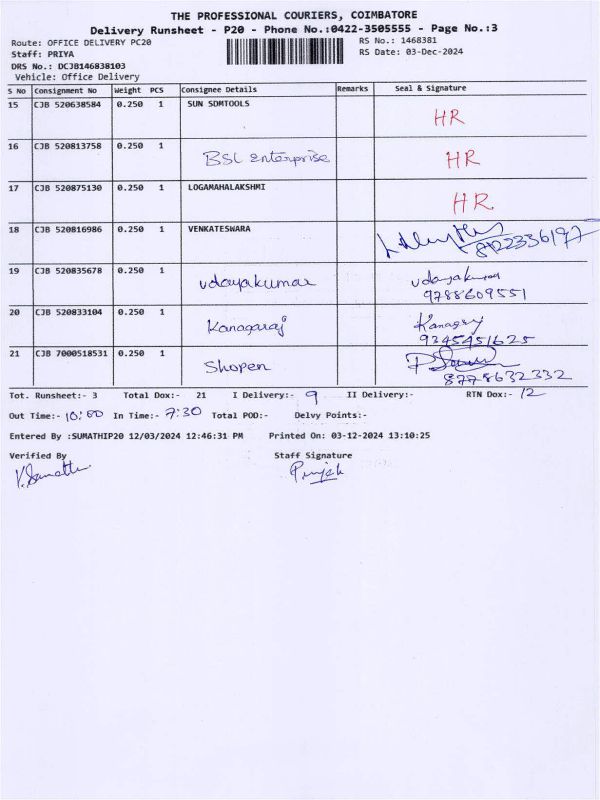 THE PROFESSIONAL COURIERS, COIMBATORE
Delivery Runsheet - P20 - Phone No.:0422-3505555 - Page No.:3
Route: OFFICE DELIVERY PC20 RS No.: 1468381
Staff: PRIYA RS Date: 03-Dec-2024
DRS No.: DCJB146838103
Vehicle: Office Delivery
S No Consignment No Weight PCS Consignee Details Remarks Seal & Signature
15 CJB 520638584 0.250 1 SUN SDMTOOLS HR
16 CJB 520813758 0.250 1 BSL Enterprise HR
17 CJB 520875130 0.250 1 LOGAMAHALAKSHMI HR
18 CJB 520816986 0.250 1 VENKATESWARA 8122336197
19 CJB 520835678 0.250 1 Udayakumar Udayakumar
9788609551
20 CJB 520833104 0.250 1 Kanagaraj Kanagaj
9345451625
21 CJB 7000518531 0.250 1 Shopen
8778632332
Tot. Runsheet:- 3 Total Dox:- 21 I Delivery:- 9 II Delivery:- RTN Dox:- 12
Out Time:- 10:00 In Time:- 7:30 Total POD:- Delvy Points:-
Entered By :SUMATHIP20 12/03/2024 12:46:31 PM Printed On: 03-12-2024 13:10:25
Verified By Staff Signature